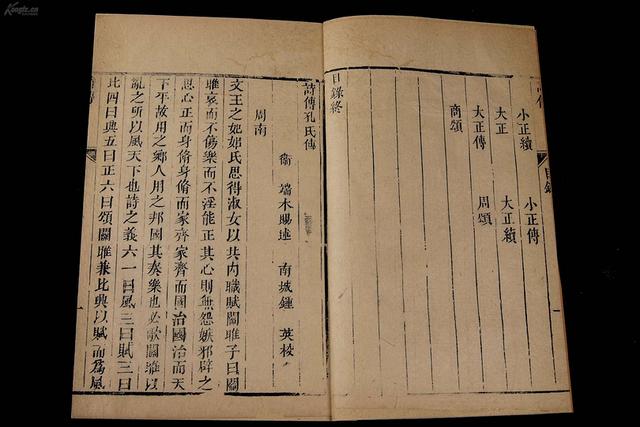 Kongfz.cn
小正續 小正傳
大正 大正續
大正傳 周頌
商頌
目錄終
目錄
一
詩傳孔氏傳
衞 端木賜述 南城鍾 英校
周南
文王之妃姒氏思得淑女以共內職賦關雎子曰關
雎哀而不傷樂而不淫能正其心則無怨嫉邪辟之
思心正而身脩身脩而家齊家齊而國治國治而天
下平故用之鄉人用之邦國其奏樂也必歌關雎以
亂之所以風天下也詩之義六一曰風二曰賦三曰
比四曰興五曰正六曰頌關雎兼比興以賦而為風
一